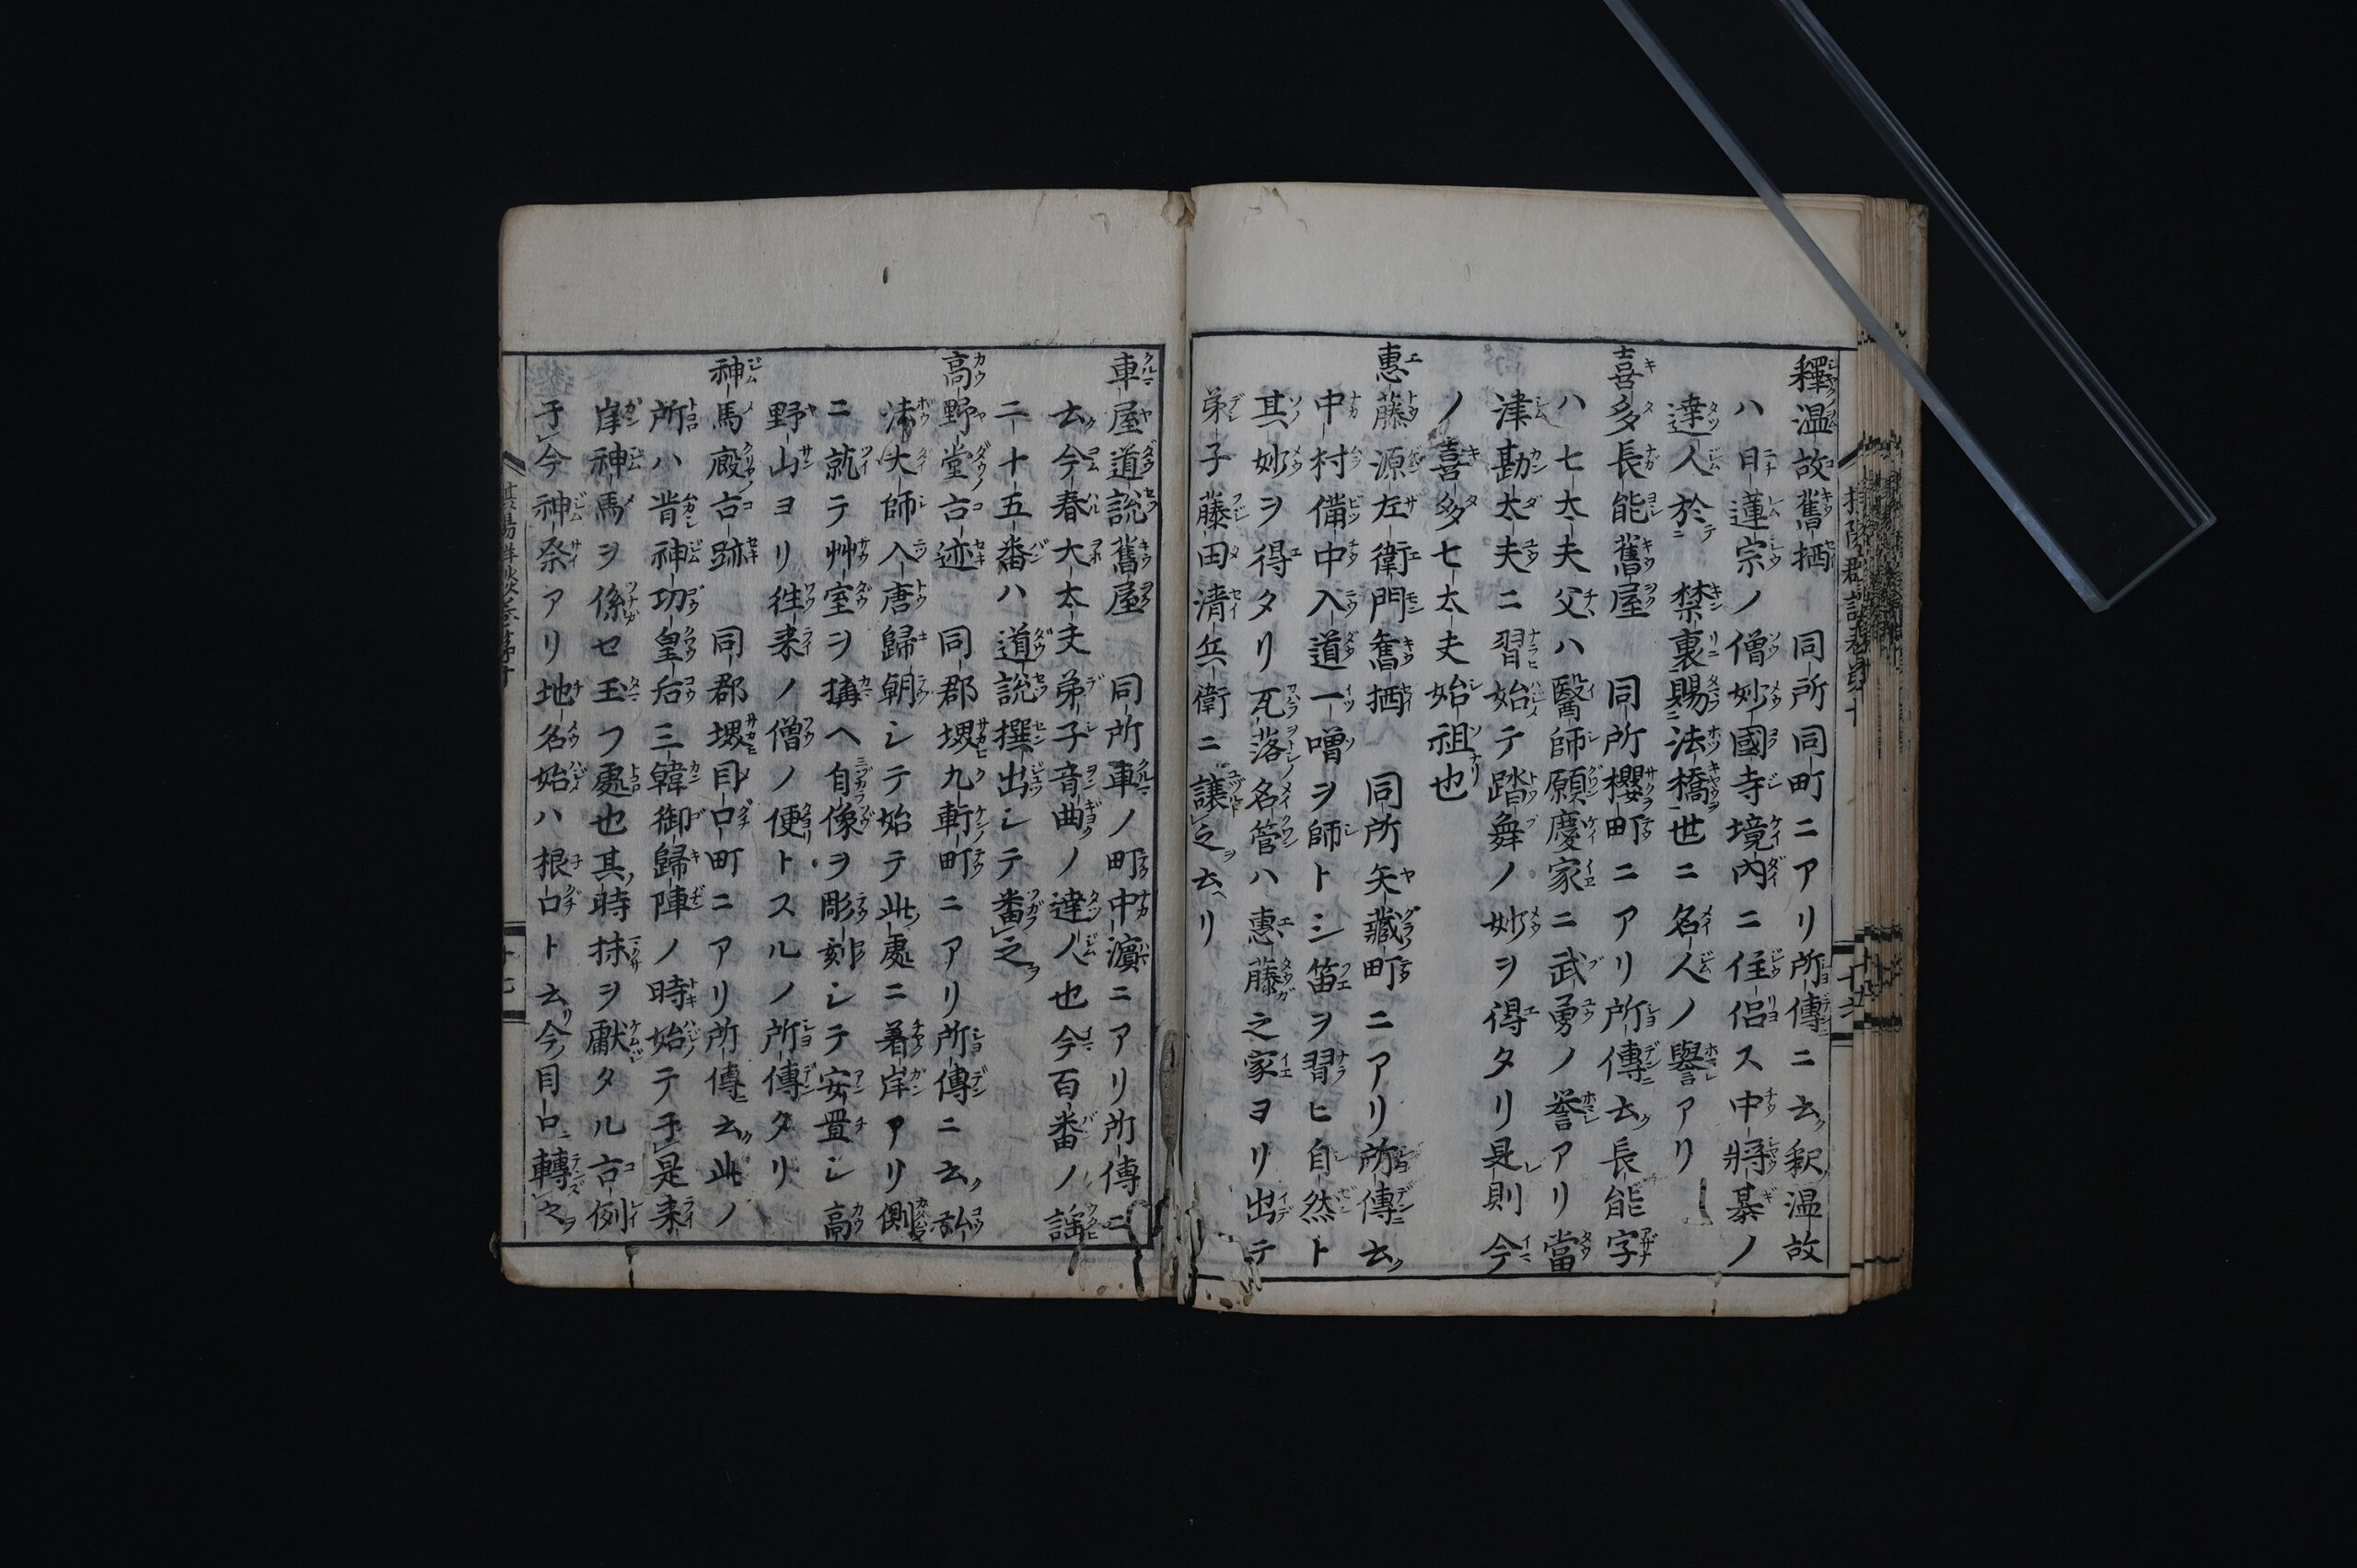 釋温故舊栖　同所同町ニアリ所傳ニ云釈温故
ハ日蓮宗ノ僧妙國寺境内ニ住侶ス中將碁ノ
達人於　禁裏賜法橋世ニ名人ノ譽アリ
喜多長能舊屋　同所櫻町ニアリ所傳云長能字
ハ七太夫父ハ醫師願慶家ニ武勇ノ誉アリ當
津勘太夫ニ習始テ踏舞ノ妙ヲ得タリ是則今
ノ喜多七太夫始祖也
惠藤源左衛門舊栖　同所矢藏町ニアリ所傳云
中村備中入道一噌ヲ師トシ笛ヲ習ヒ自然ト
其妙ヲ得タリ瓦落名管ハ惠藤之家ヨリ出テ
弟子藤田清兵衛ニ譲之云リ
車屋道説舊屋　同所車ノ町中濵ニアリ所傳ニ
云今春大太夫弟子音曲ノ達人也今百番ノ謡
二十五番ハ道説撰出シテ番之
高野堂古迹　同郡堺九軒町ニアリ所傳ニ云弘
法大師入唐歸朝シテ始テ此處ニ着岸アリ側
ニ就テ艸室ヲ搆ヘ自像ヲ彫刻シテ安置シ高
野山ヨリ徃来ノ僧ノ便トスルノ所傳タリ
神馬廏古跡　同郡堺目口町ニアリ所傳云此ノ
所ハ昔神功皇后三韓御歸陣ノ時始テ于是来
岸神馬ヲ係セ玉フ處也其時抹ヲ獻タル古例
于今神祭アリ地名始ハ根口ト云今目口轉之